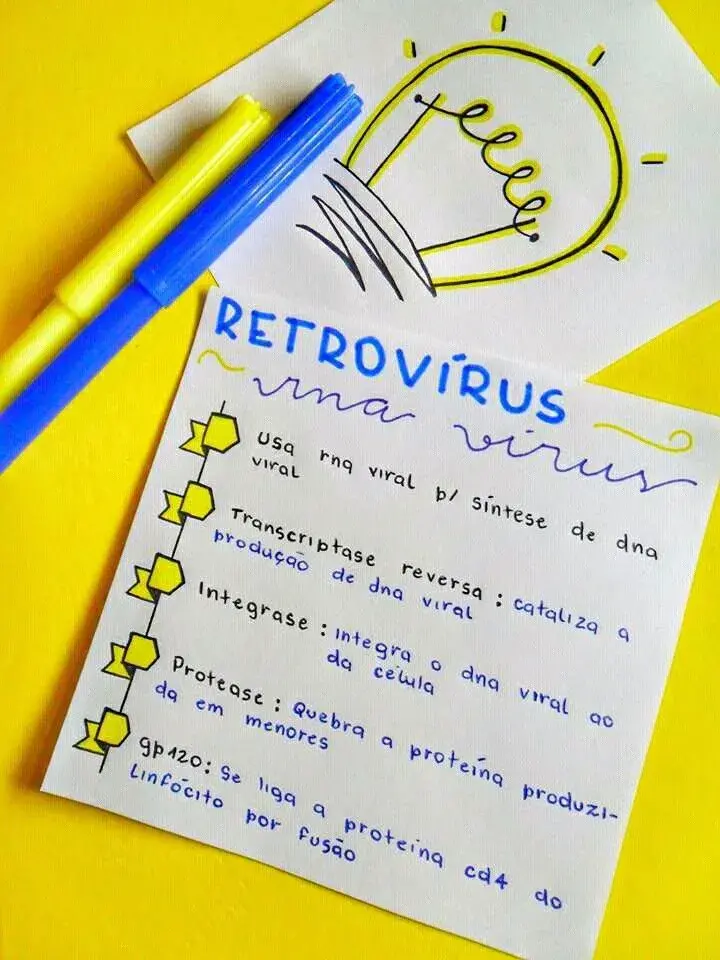 RETROVÍRUS
rna vírus
Usa rna viral p/ síntese de dna
viral
Transcriptase reversa: cataliza a
produção de dna viral
Integrase: integra o dna viral ao
da célula
Protease: Quebra a proteína produzi-
da em menores
gp120: Se liga a proteína cd4 do
Linfócito por fusão